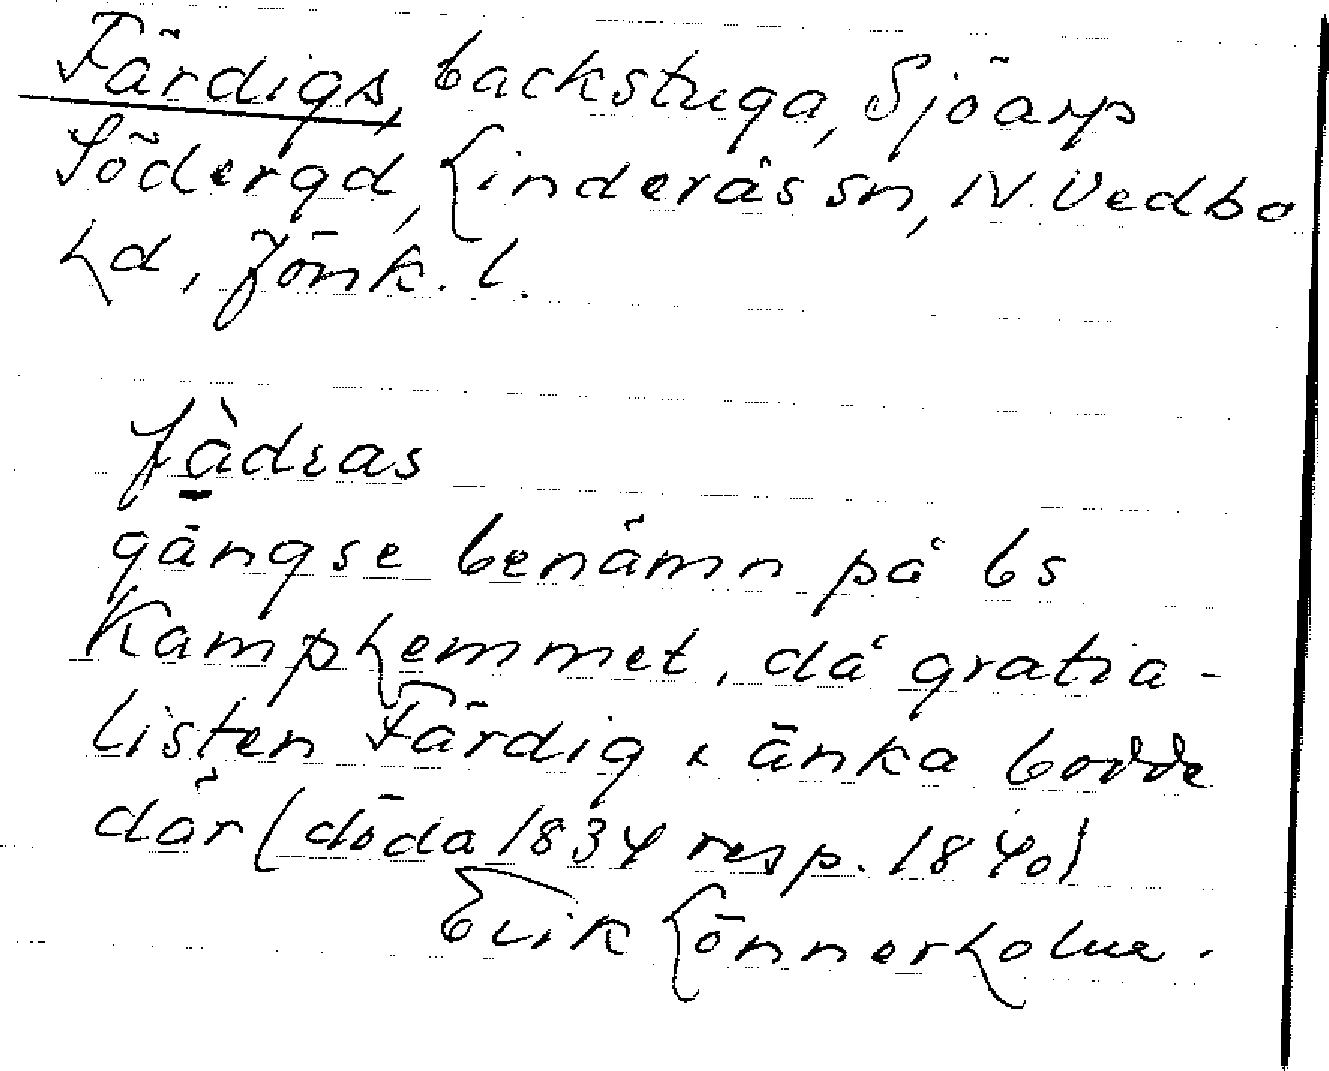 Färdigs, backstuga, Sjöarp
Södergd, Linderås sn, N. Vedbo
hd, Jönk. l.
gängse benämn på bs
Kamphemmet, då gratia-
listen Färdig & änka bodde
där (döda 1834 resp. 1840)
Erik Lönnerholm.